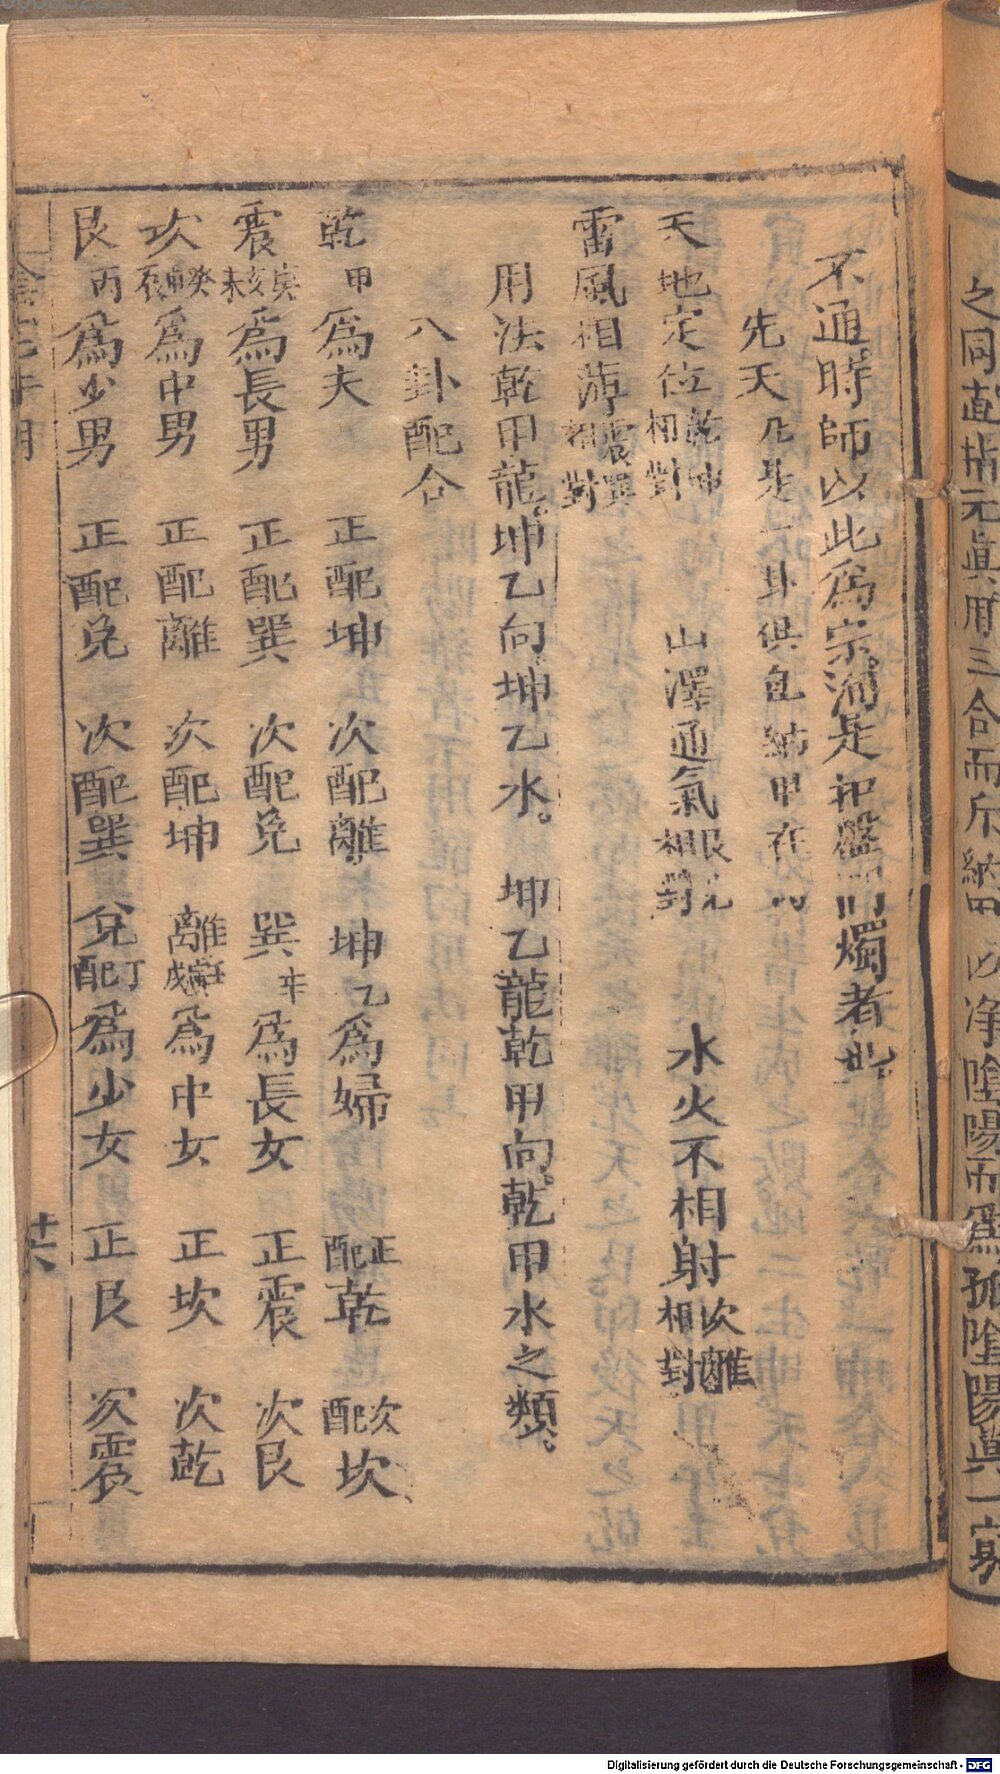 之同直指元眞用三合而斥納甲以净陰陽而爲孤陰陽眞一窮
不通時師以此爲宗洵是和盤門燭者
先天 凡是一卦俱包納甲在內
天地定位 乾坤相對 山澤通氣 艮兌相對 水火不相射 坎離相對
雷風相薄 震巽相對
用法乾甲龍坤乙向坤乙水。坤乙龍乾甲向乾甲水之類。
八卦配合
乾甲爲夫 正配坤 次配離 坤乙爲婦 正配乾 次配坎
震庚亥未爲長男 正配巽 次配兌 巽辛爲長女 正震 次艮
坎癸申辰爲中男 正配離 次配坤 離壬寅戌爲中女 正坎 次乾
艮丙爲少男 正配兌 次配巽 兌丁配爲少女 正艮 次震
十六
Digitalisierung gefördert durch die Deutsche Forschungsgemeinschaft - DFG